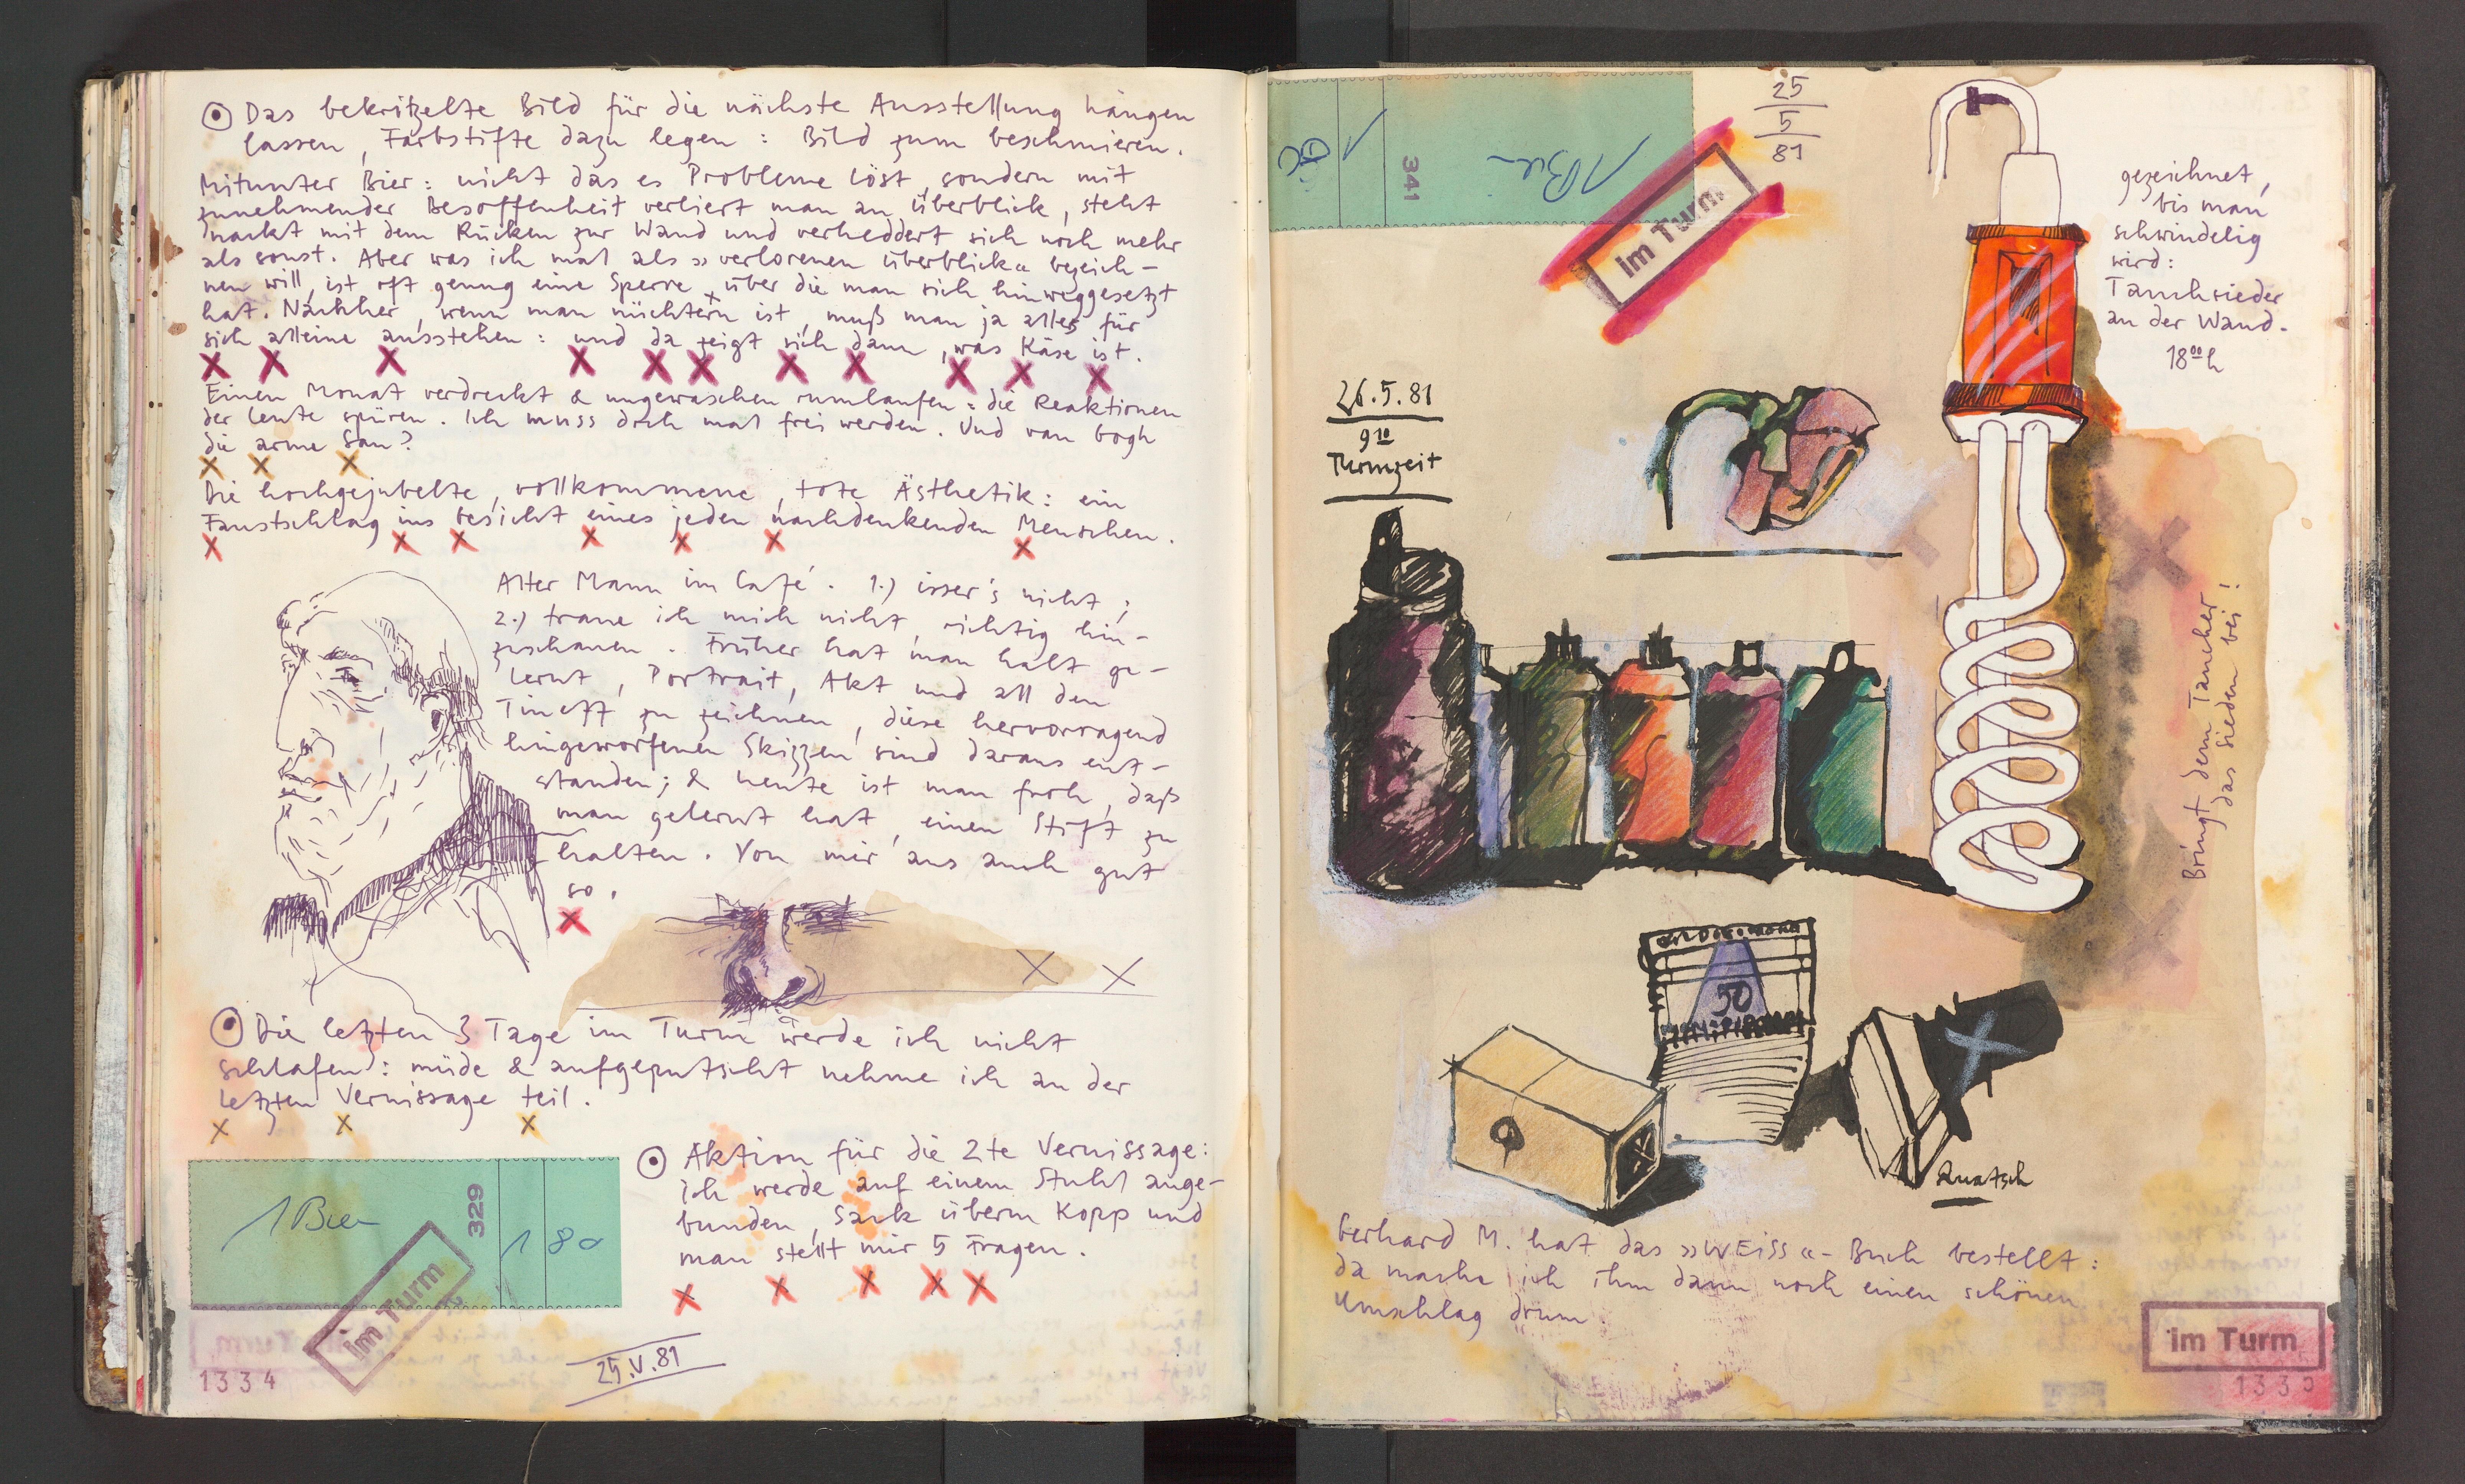 Das bekritzelte Bild für die nächste Ausstellung hängen
lassen, Farbstifte dazu legen: Bild zum beschmieren.
Mitunter Bier: nicht das es Probleme löst, sondern mit
zunehmender Besoffenheit verliert man an überblick, steht
nackt mit dem Rücken zur Wand und verheddert sich noch mehr
als sonst. Aber was ich mal als »verlorenen überblick« bezeich-
nen will, ist oft genug eine Sperre, über die man sich hinweggesetzt
hat. Nachher, wenn man nüchtern ist, muß man ja alles für
sich alleine ausstehen: und da zeigt sich dann, was Käse ist.
X X X X X X X X X X X
Einen Monat verdreckt & ungewaschen rumlaufen: die Reaktionen
der Leute spüren. Ich muss doch mal frei werden. Und van Gogh
die arme Sau?
X X X
Die hochgejubelte, vollkommene, tote Ästhetik: ein
Faustschlag ins Gesicht eines jeden nachdenkenden Menschen.
X X X X X X X
Alter Mann im Café. 1.) isser's nicht;
2.) traue ich mich nicht, richtig hin-
zuschauen. Früher hat man halt ge-
lernt, Portrait, Akt und all den
Tineff zu zeichnen, diese hervorragend
hingeworfenen Skizzen sind daraus ent-
standen; & heute ist man froh, daß
man gelernt hat, einen Stift zu
halten. Von mir aus auch gut
so.
X
X X
Die letzten 3 Tage im Turm werde ich nicht
schlafen: müde & aufgeputscht nehme ich an der
letzten Vernissage teil.
X X X
Aktion für die 2te Vernissage:
Ich werde auf einem Stuhl ange-
bunden, Sack überm Kopp und
man stellt mir 5 Fragen.
X X X X X
1 Bier
329
1 80
im Turm
1334
25.V.81
341
1 Bier
1
im Turm.
25
5
81
gezeichnet,
bis man
schwindelig
wird:
Tauchsieder
an der Wand.
18⁰⁰h
26.5.81
9¹⁰
Turmzeit
Bringt dem Taucher
das Sieden bei!
50
X
Quatsch
Gerhard M. hat das »WEISS«-Buch bestellt:
da mache ich ihm dann noch einen schönen
Umschlag drum
im Turm
1335